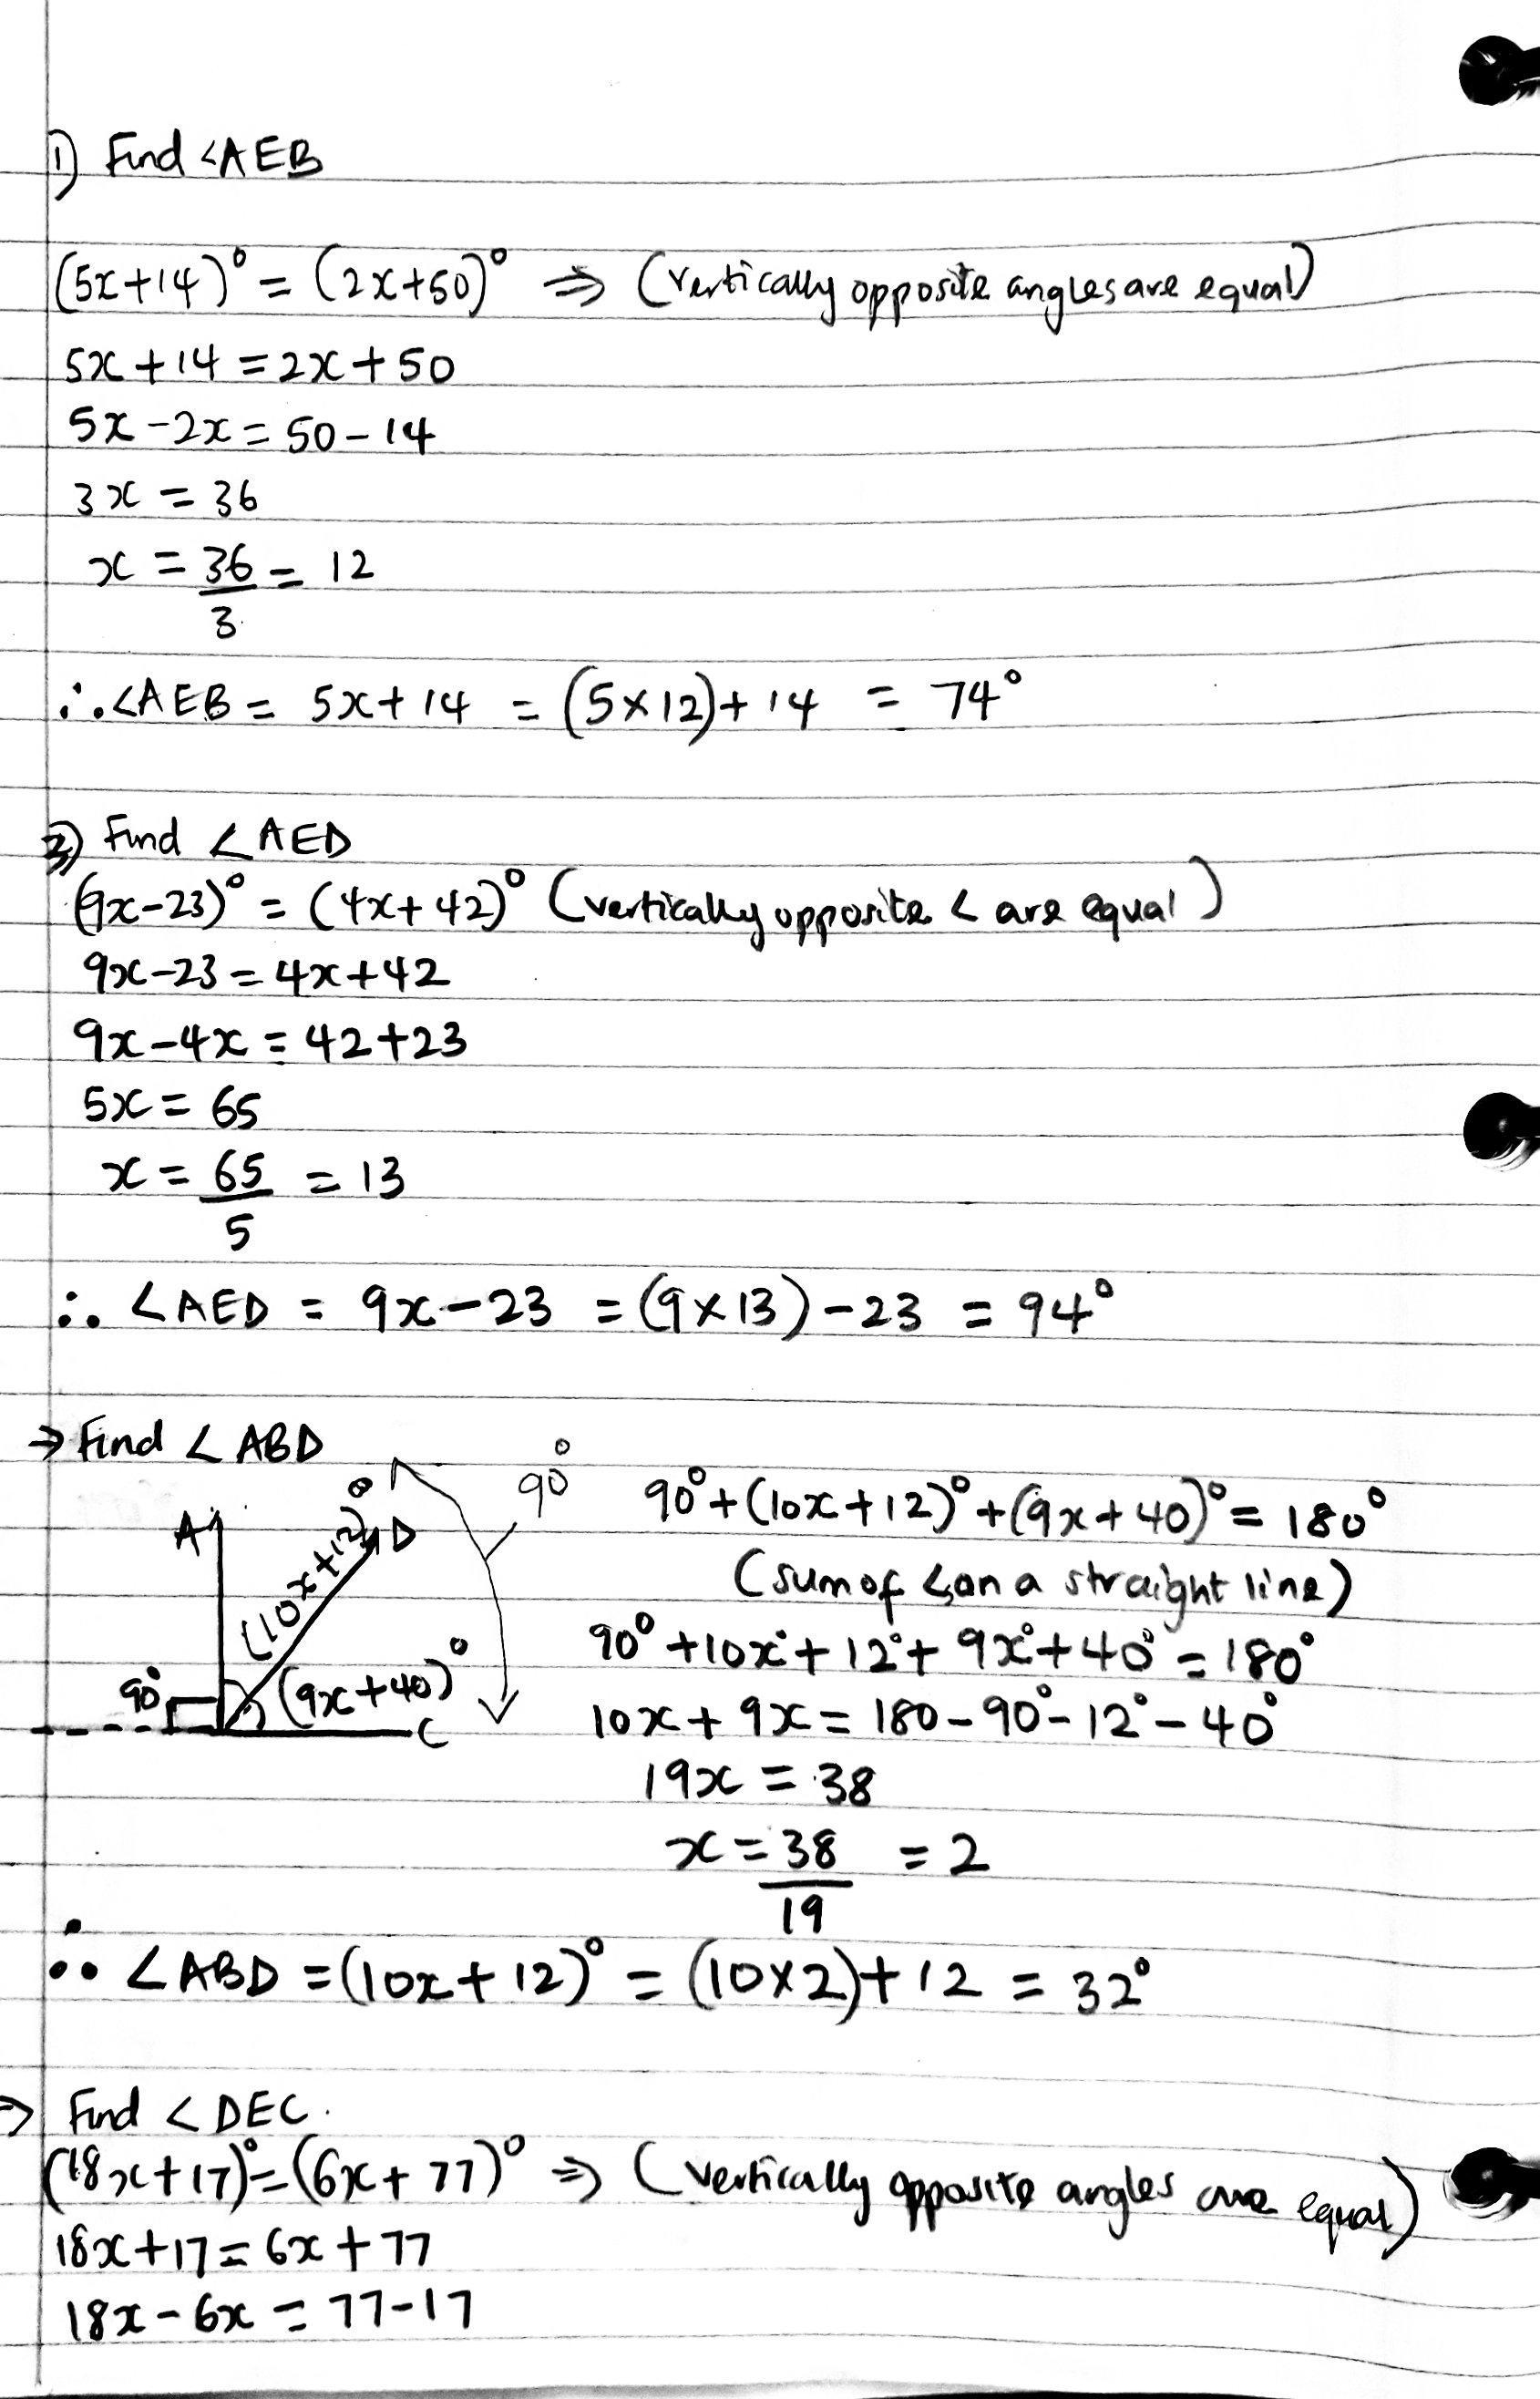 1) Find <AEB
(5x+14)° = (2x+50)° ⇒ (vertically opposite angles are equal)
5x+14 = 2x+50
5x-2x = 50-14
3x = 36
x = 36/3 = 12
∴ <AEB = 5x+14 = (5×12)+14 = 74°
2) Find <AED
(9x-23)° = (4x+42)° (vertically opposite < are equal)
9x-23 = 4x+42
9x-4x = 42+23
5x = 65
x = 65/5 = 13
∴ <AED = 9x-23 = (9×13)-23 = 94°
→ Find <ABD
A
D
(10x+12)°
90°
90°
(9x+40)°
C
90°+(10x+12)°+(9x+40)° = 180°
(sum of < on a straight line)
90°+10x°+12°+9x°+40° = 180°
10x+9x = 180-90°-12°-40°
19x = 38
x = 38/19 = 2
∴ <ABD = (10x+12)° = (10×2)+12 = 32°
→ Find <DEC.
(18x+17)° = (6x+77)° ⇒ (vertically opposite angles are equal)
18x+17 = 6x+77
18x-6x = 77-17